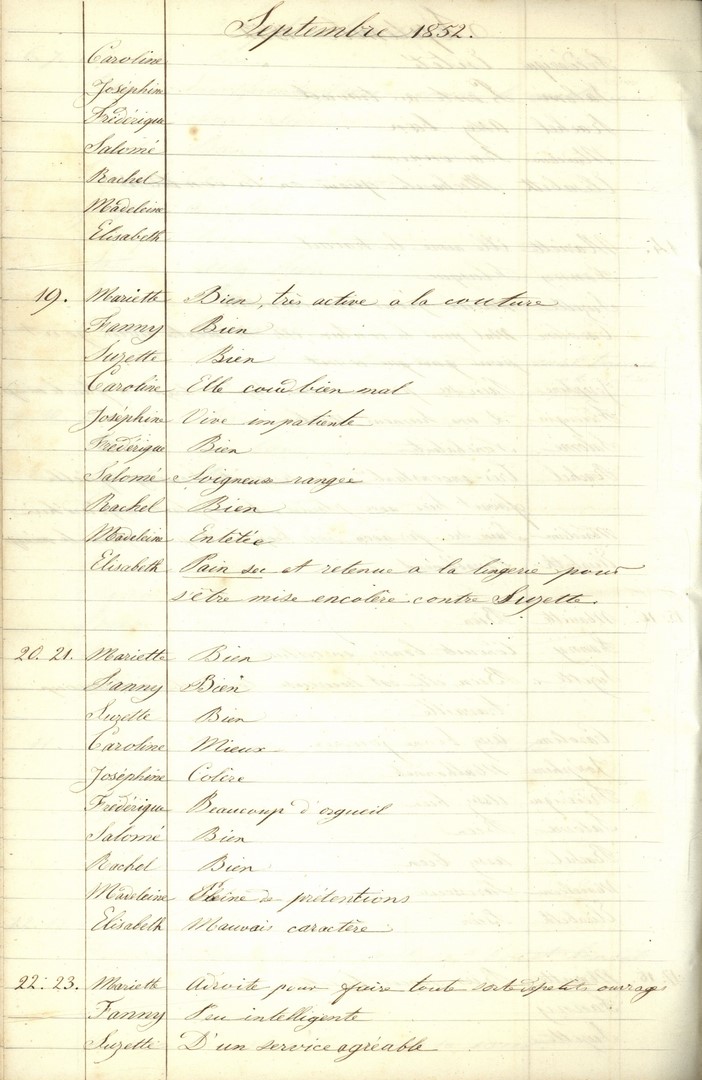 Septembre 1852.
Caroline
Joséphine
Frédérique
Salomé
Rachel
Madeleine
Elisabeth
19. Mariette Bien, très active a la couture
Fanny Bien
Suzette Bien
Caroline Elle coud bien mal
Joséphine Vive impatiente
Frédérique Bien
Salomé Soigneuse rangée
Rachel Bien
Madeleine Entêtée
Elisabeth Pain sec et retenue à la lingerie pour
s'être mise en colère contre Suzette.
20. 21. Mariette Bien
Fanny Bien
Suzette Bien
Caroline Mieux
Joséphine Colère
Frédérique Beaucoup d'orgueil
Salomé Bien
Rachel Bien
Madeleine Pleine de prétentions
Elisabeth Mauvais caractère
22. 23. Mariette Adroite pour faire toute sorte de petits ouvrages
Fanny Peu intelligente
Suzette D'un service agréable